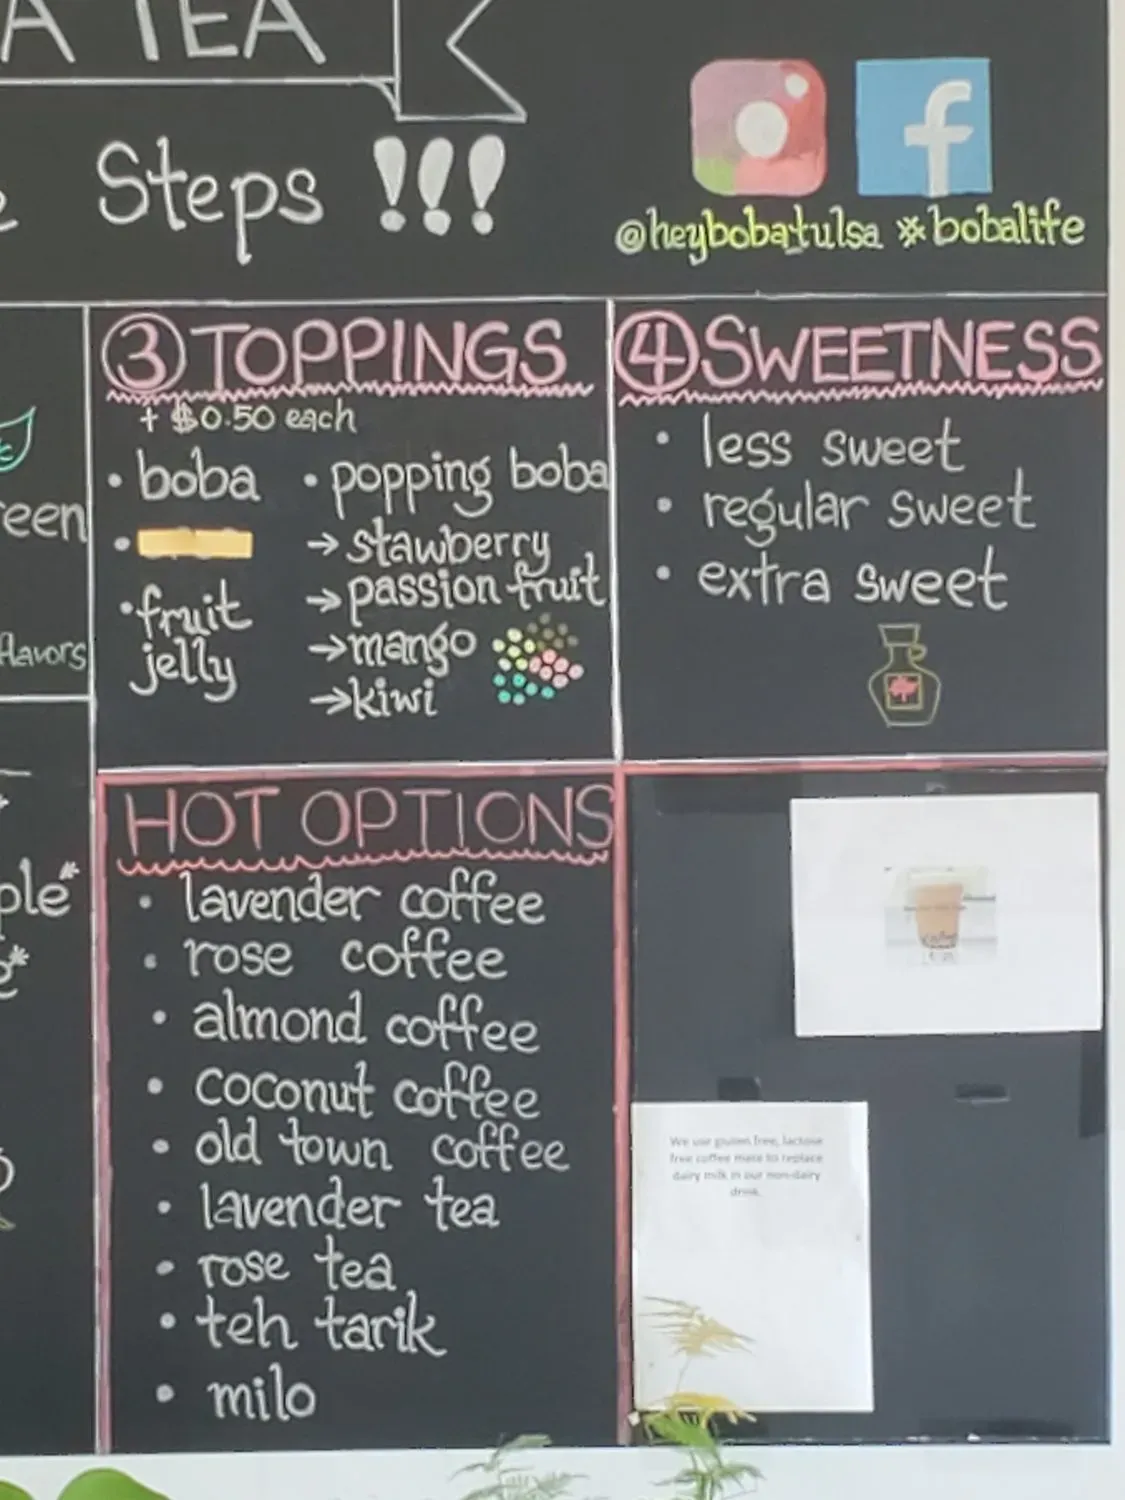 A TEA
Steps !!!
@heybobatulsa #bobalife
3 TOPPINGS
+ $0.50 each
• boba
• fruit
jelly
• popping boba
→ stawberry
→ passion fruit
→ mango
→ kiwi
4 SWEETNESS
• less sweet
• regular sweet
• extra sweet
een
flavors
ple*
e*
HOT OPTIONS
• lavender coffee
• rose coffee
• almond coffee
• coconut coffee
• old town coffee
• lavender tea
• rose tea
• teh tarik
• milo
We use gluten free, lactose
free coffee mate to replace
dairy milk in our non-dairy
drink.